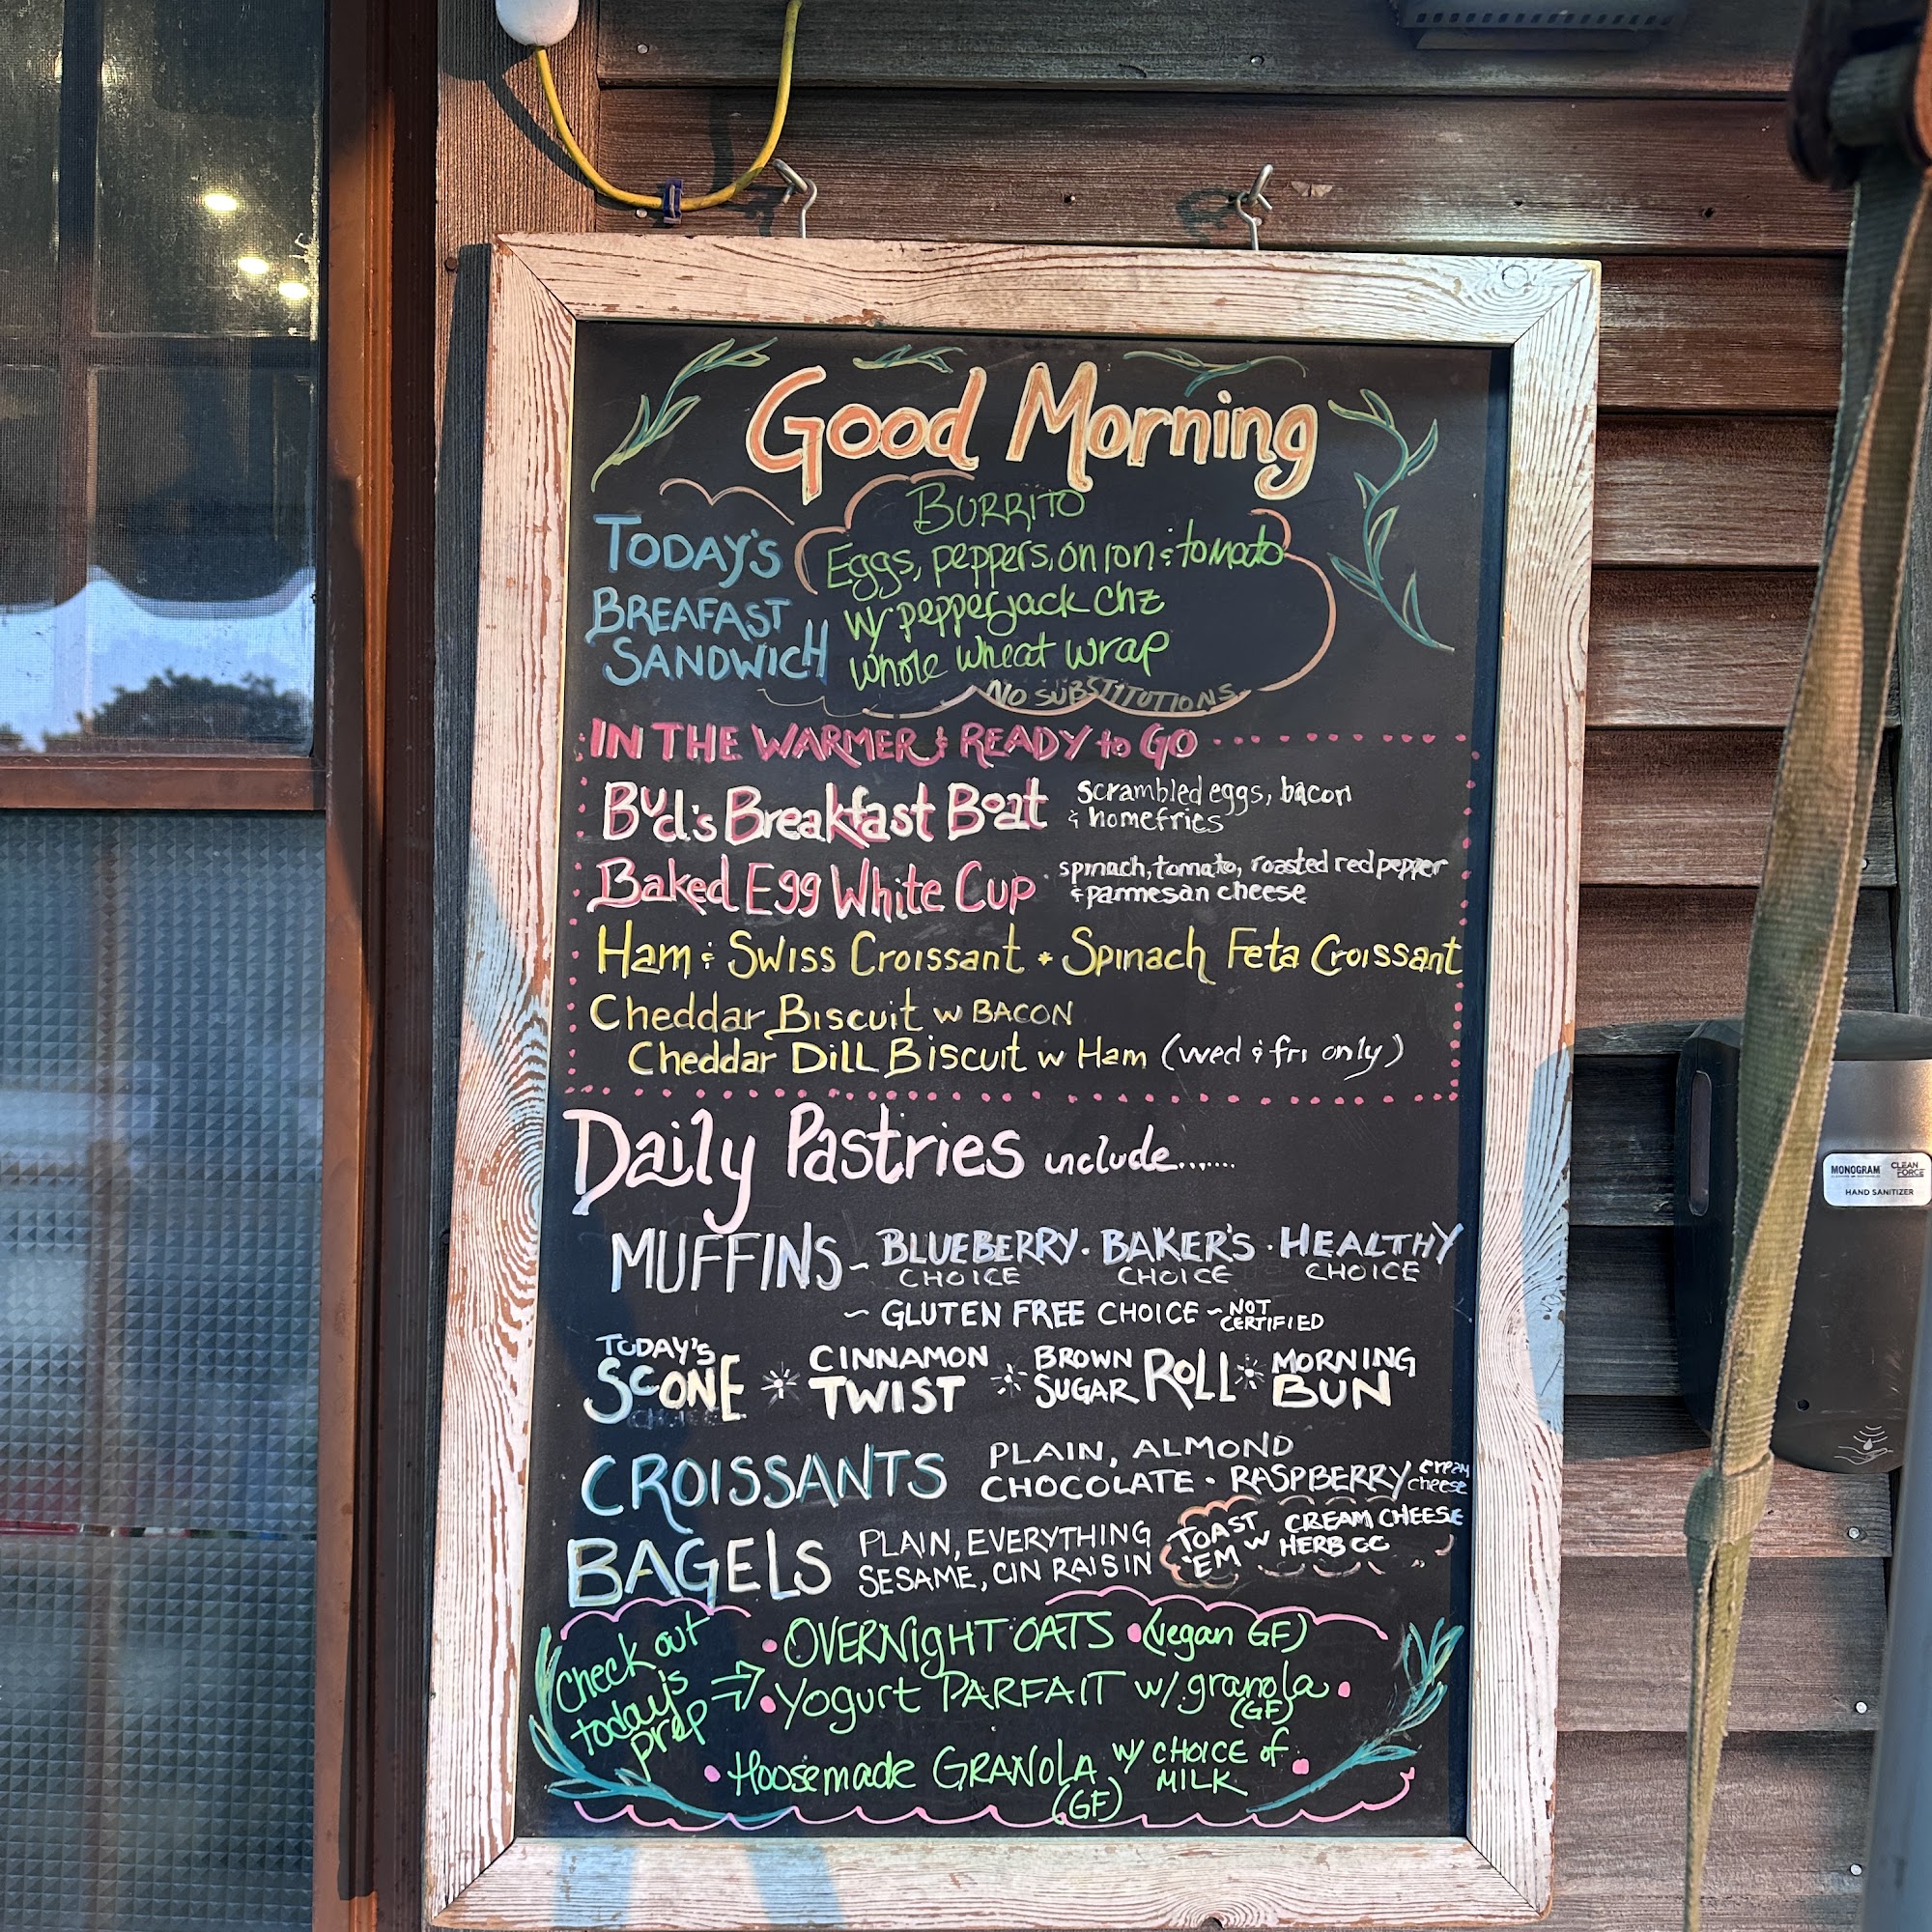 Good Morning
TODAY'S
BREAFAST
SANDWICH
BURRITO
Eggs, peppers, onion & tomato
w/ pepperjack chz
whole wheat wrap
NO SUBSTITUTIONS
IN THE WARMER & READY to GO
Bud's Breakfast Boat
scrambled eggs, bacon
& homefries
Baked Egg White Cup
spinach, tomato, roasted red pepper
& parmesan cheese
Ham & Swiss Croissant • Spinach Feta Croissant
Cheddar Biscuit w BACON
Cheddar Dill Biscuit w Ham (wed & fri only)
Daily Pastries include.......
MUFFINS - BLUEBERRY · BAKER'S · HEALTHY
CHOICE CHOICE CHOICE
~ GLUTEN FREE CHOICE ~ NOT
CERTIFIED
TODAY'S
SCONE
CHOICE
CINNAMON
TWIST
BROWN
SUGAR ROLL
MORNING
BUN
CROISSANTS
PLAIN, ALMOND
CHOCOLATE · RASPBERRY cream
cheese
BAGELS
PLAIN, EVERYTHING
SESAME, CIN RAISIN
TOAST
'EM w
CREAM CHEESE
HERB CC
Check out
today's
prep
• OVERNIGHT OATS • (vegan GF)
• Yogurt PARFAIT w/ granola •
(GF)
• Hoosemade GRANOLA w/ CHOICE of •
MILK
(GF)
MONOGRAM
CLEAN
FORCE
HAND SANITIZER